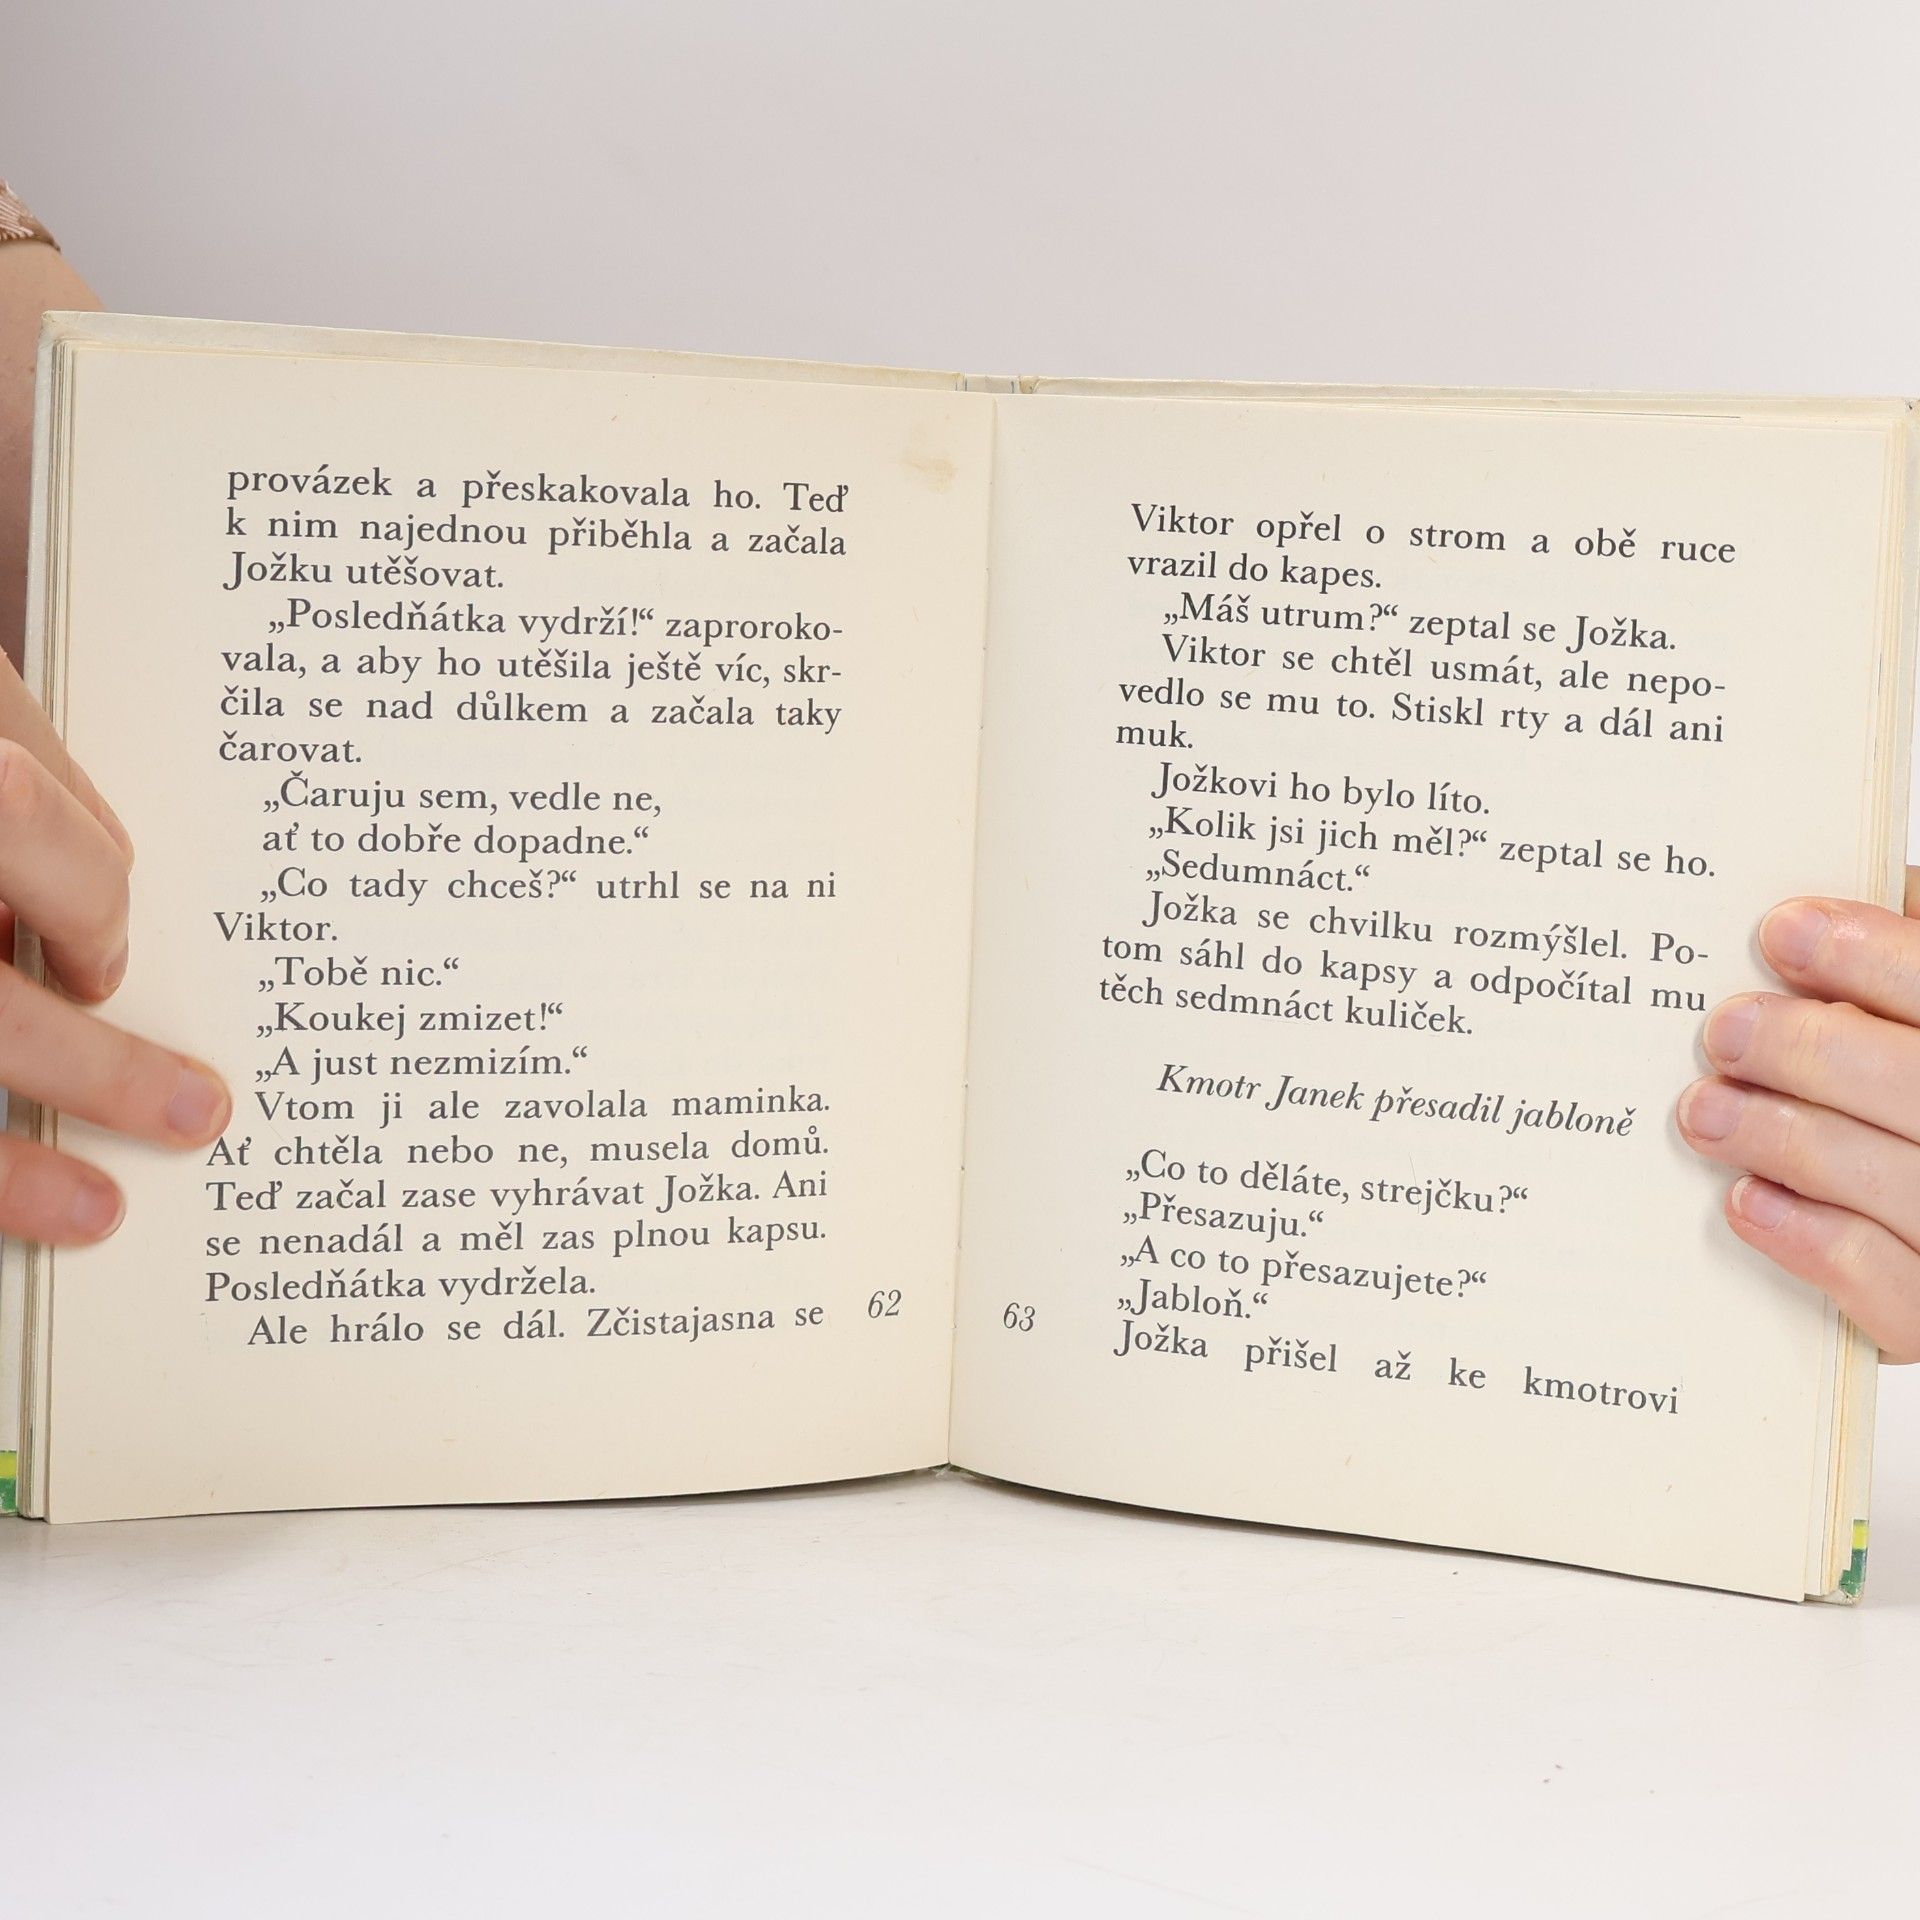 provázek a přeskakovala ho. Teď
k nim najednou přiběhla a začala
Jožku utěšovat.
„Posledňátka vydrží!“ zaproroko-
vala, a aby ho utěšila ještě víc, skr-
čila se nad důlkem a začala taky
čarovat.
„Čaruju sem, vedle ne,
ať to dobře dopadne.“
„Co tady chceš?“ utrhl se na ni
Viktor.
„Tobě nic.“
„Koukej zmizet!“
„A just nezmizím.“
Vtom ji ale zavolala maminka.
Ať chtěla nebo ne, musela domů.
Teď začal zase vyhrávat Jožka. Ani
se nenadál a měl zas plnou kapsu.
Posledňátka vydržela.
Ale hrálo se dál. Zčistajasna se
62
Viktor opřel o strom a obě ruce
vrazil do kapes.
„Máš utrum?“ zeptal se Jožka.
Viktor se chtěl usmát, ale nepo-
vedlo se mu to. Stiskl rty a dál ani
muk.
Jožkovi ho bylo líto.
„Kolik jsi jich měl?“ zeptal se ho.
„Sedumnáct.“
Jožka se chvilku rozmýšlel. Po-
tom sáhl do kapsy a odpočítal mu
těch sedmnáct kuliček.
Kmotr Janek přesadil jabloně
„Co to děláte, strejčku?“
„Přesazuju.“
„A co to přesazujete?“
„Jabloň.“
Jožka přišel až ke kmotrovi
63